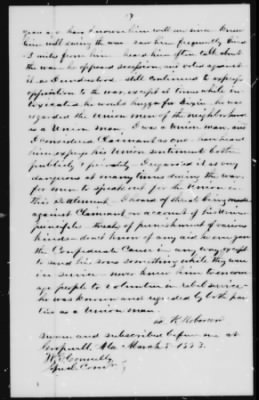 years ago have known him well ever since knew
him well during the war saw him frequently lived
3 miles from him heard him often talk about
the war he opposed secession and voted against
it as I understood still continued to express
opposition to the war except at times while in-
toxicated he would huzza for Dixie he was
regarded the Union men of the neighborhood
as a Union man, I was a Union man, and
I considered Claimant as one have heard
him express his Union sentiment both
publicly & privately I regarded it as very
dangerous at many times during the war
for men to speak out for the Union in
this settlement I heard of threats being made
against Claimant on account of his Union
principles threats of punishment of various
kinds dont know of any aid he ever gave
the Confederate Cause in any way except
to send his sons something while they were
in service never knew him to encour-
age people to volunteer in rebel service
he was known and regarded by both par-
ties as a Union man.
R Roberson
sworn and subscribed before me at
Ala March 5 1873
Connelly
Com